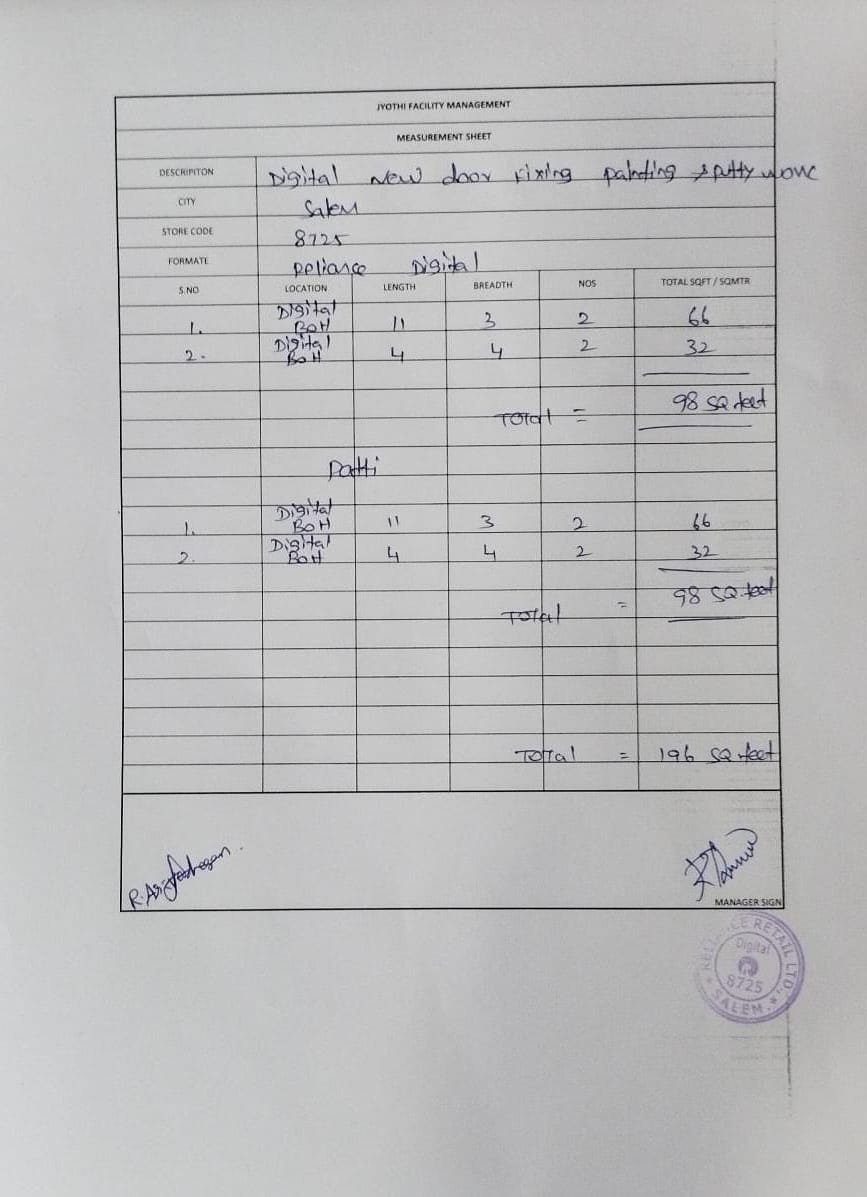 JYOTHI FACILITY MANAGEMENT
MEASUREMENT SHEET
DESCRIPITON Digital New door Fixing painting & putty work
CITY Salem
STORE CODE 8725
FORMATE Reliance Digital
S.NO LOCATION LENGTH BREADTH NOS TOTAL SQFT / SQMTR
1. Digital BOH 11 3 2 66
2. Digital BOH 4 4 2 32
Total = 98 SQ feet
Patti
1. Digital BOH 11 3 2 66
2. Digital BOH 4 4 2 32
Total = 98 SQ feet
Total = 196 SQ feet
MANAGER SIGN
RELIANCE RETAIL LTD.,
Digital
8725
* SALEM *